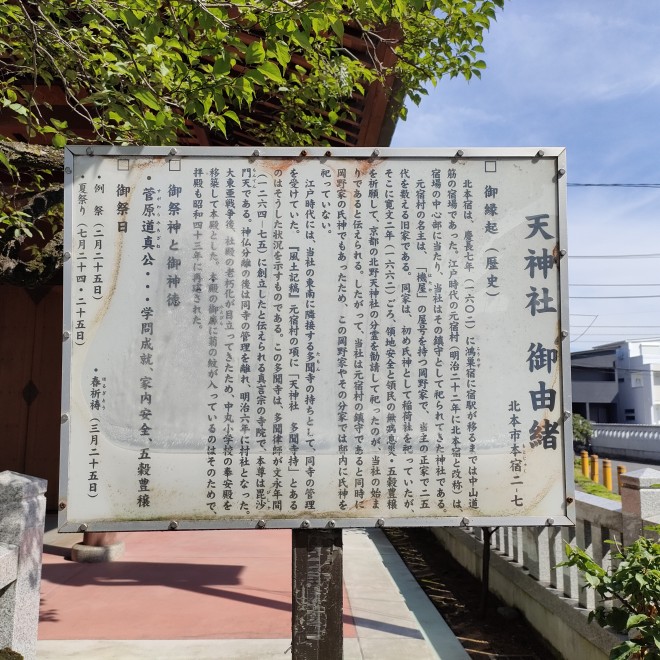 天神社 御由緒
北本市本宿二-七
□ 御縁起（歴史）
北本宿は、慶長七年（一六〇二）に鴻巣宿に宿駅が移るまでは中山道
筋の宿場であった。江戸時代の元宿村（明治二十二年に北本宿と改称）は、
宿場の中心部に当たり、当社はその鎮守として祀られてきた神社である。
元宿村の名主は、「機屋」の屋号を持つ岡野家で、当主の正家で二五
代を数える旧家である。同家は、初め氏神として稲荷社を祀っていたが、
そこに寛文二年（一六六二）ごろ、領地安全と領民の無病息災・五穀豊穣
を祈願して、京都の北野天神社の分霊を勧請して祀ったのが、当社の始ま
りであると伝えられる。したがって、当社は元宿村の鎮守であると同時に
岡野家の氏神でもあったため、この岡野家やその分家では邸内に氏神を
祀っていない。
江戸時代には、当社の東南に隣接する多聞寺の持ちとして、同寺の管理
を受けていた。『風土記稿』元宿村の項に「天神社 多聞寺持」とある
のはそうした状況を示すものである。この多聞寺は、多聞律師が文永年間
（一二六四-七五）に創立したと伝えられる真言宗の寺院で、本尊は毘沙
門天である。神仏分離の後は同寺の管理を離れ、明治六年に村社となった。
大東亜戦争後、社殿の老朽化が目立ってきたため、中丸小学校の奉安殿を
移築して本殿とした。本殿の御扉に菊の紋が入っているのはそのためで、
拝殿も昭和四十三年に再建された。
□ 御祭神と御神徳
・菅原道真公・・・学問成就、家内安全、五穀豊穣
□ 御祭日
・例 祭（二月二十五日） ・春祈祷（三月二十五日）
・夏祭り（七月二十四・二十五日）